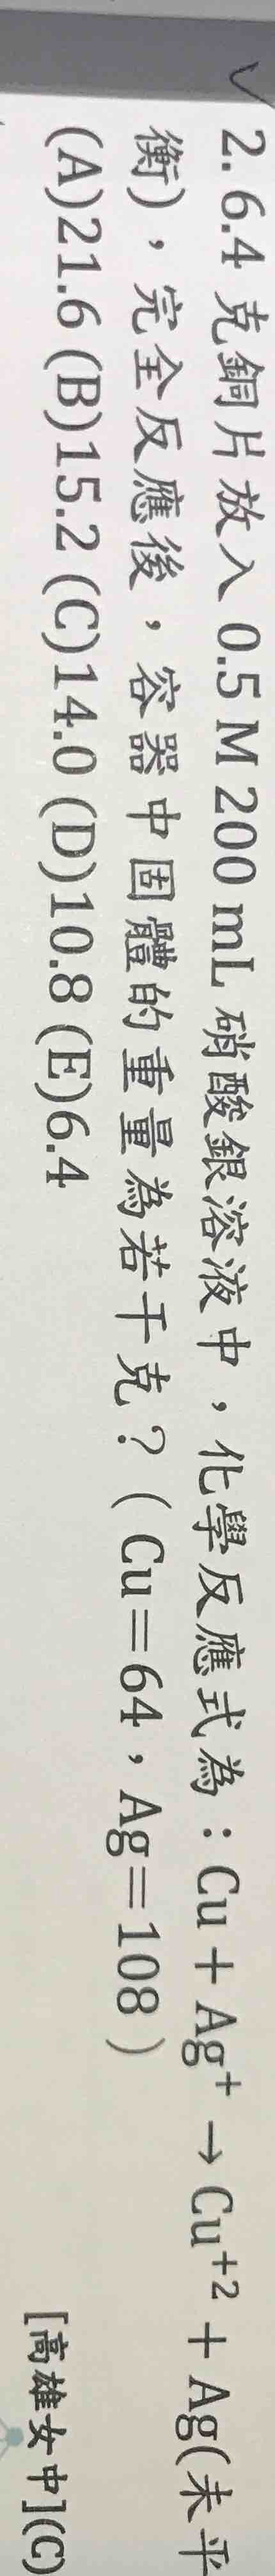 2. 6.4 克銅片放入 0.5 M 200 mL 硝酸銀溶液中，化學反應式為：Cu＋Ag⁺ → Cu⁺²＋Ag(未平
衡)，完全反應後，容器中固體的重量為若干克？（Cu＝64，Ag＝108）
(A)21.6 (B)15.2 (C)14.0 (D)10.8 (E)6.4
[高雄女中](C)